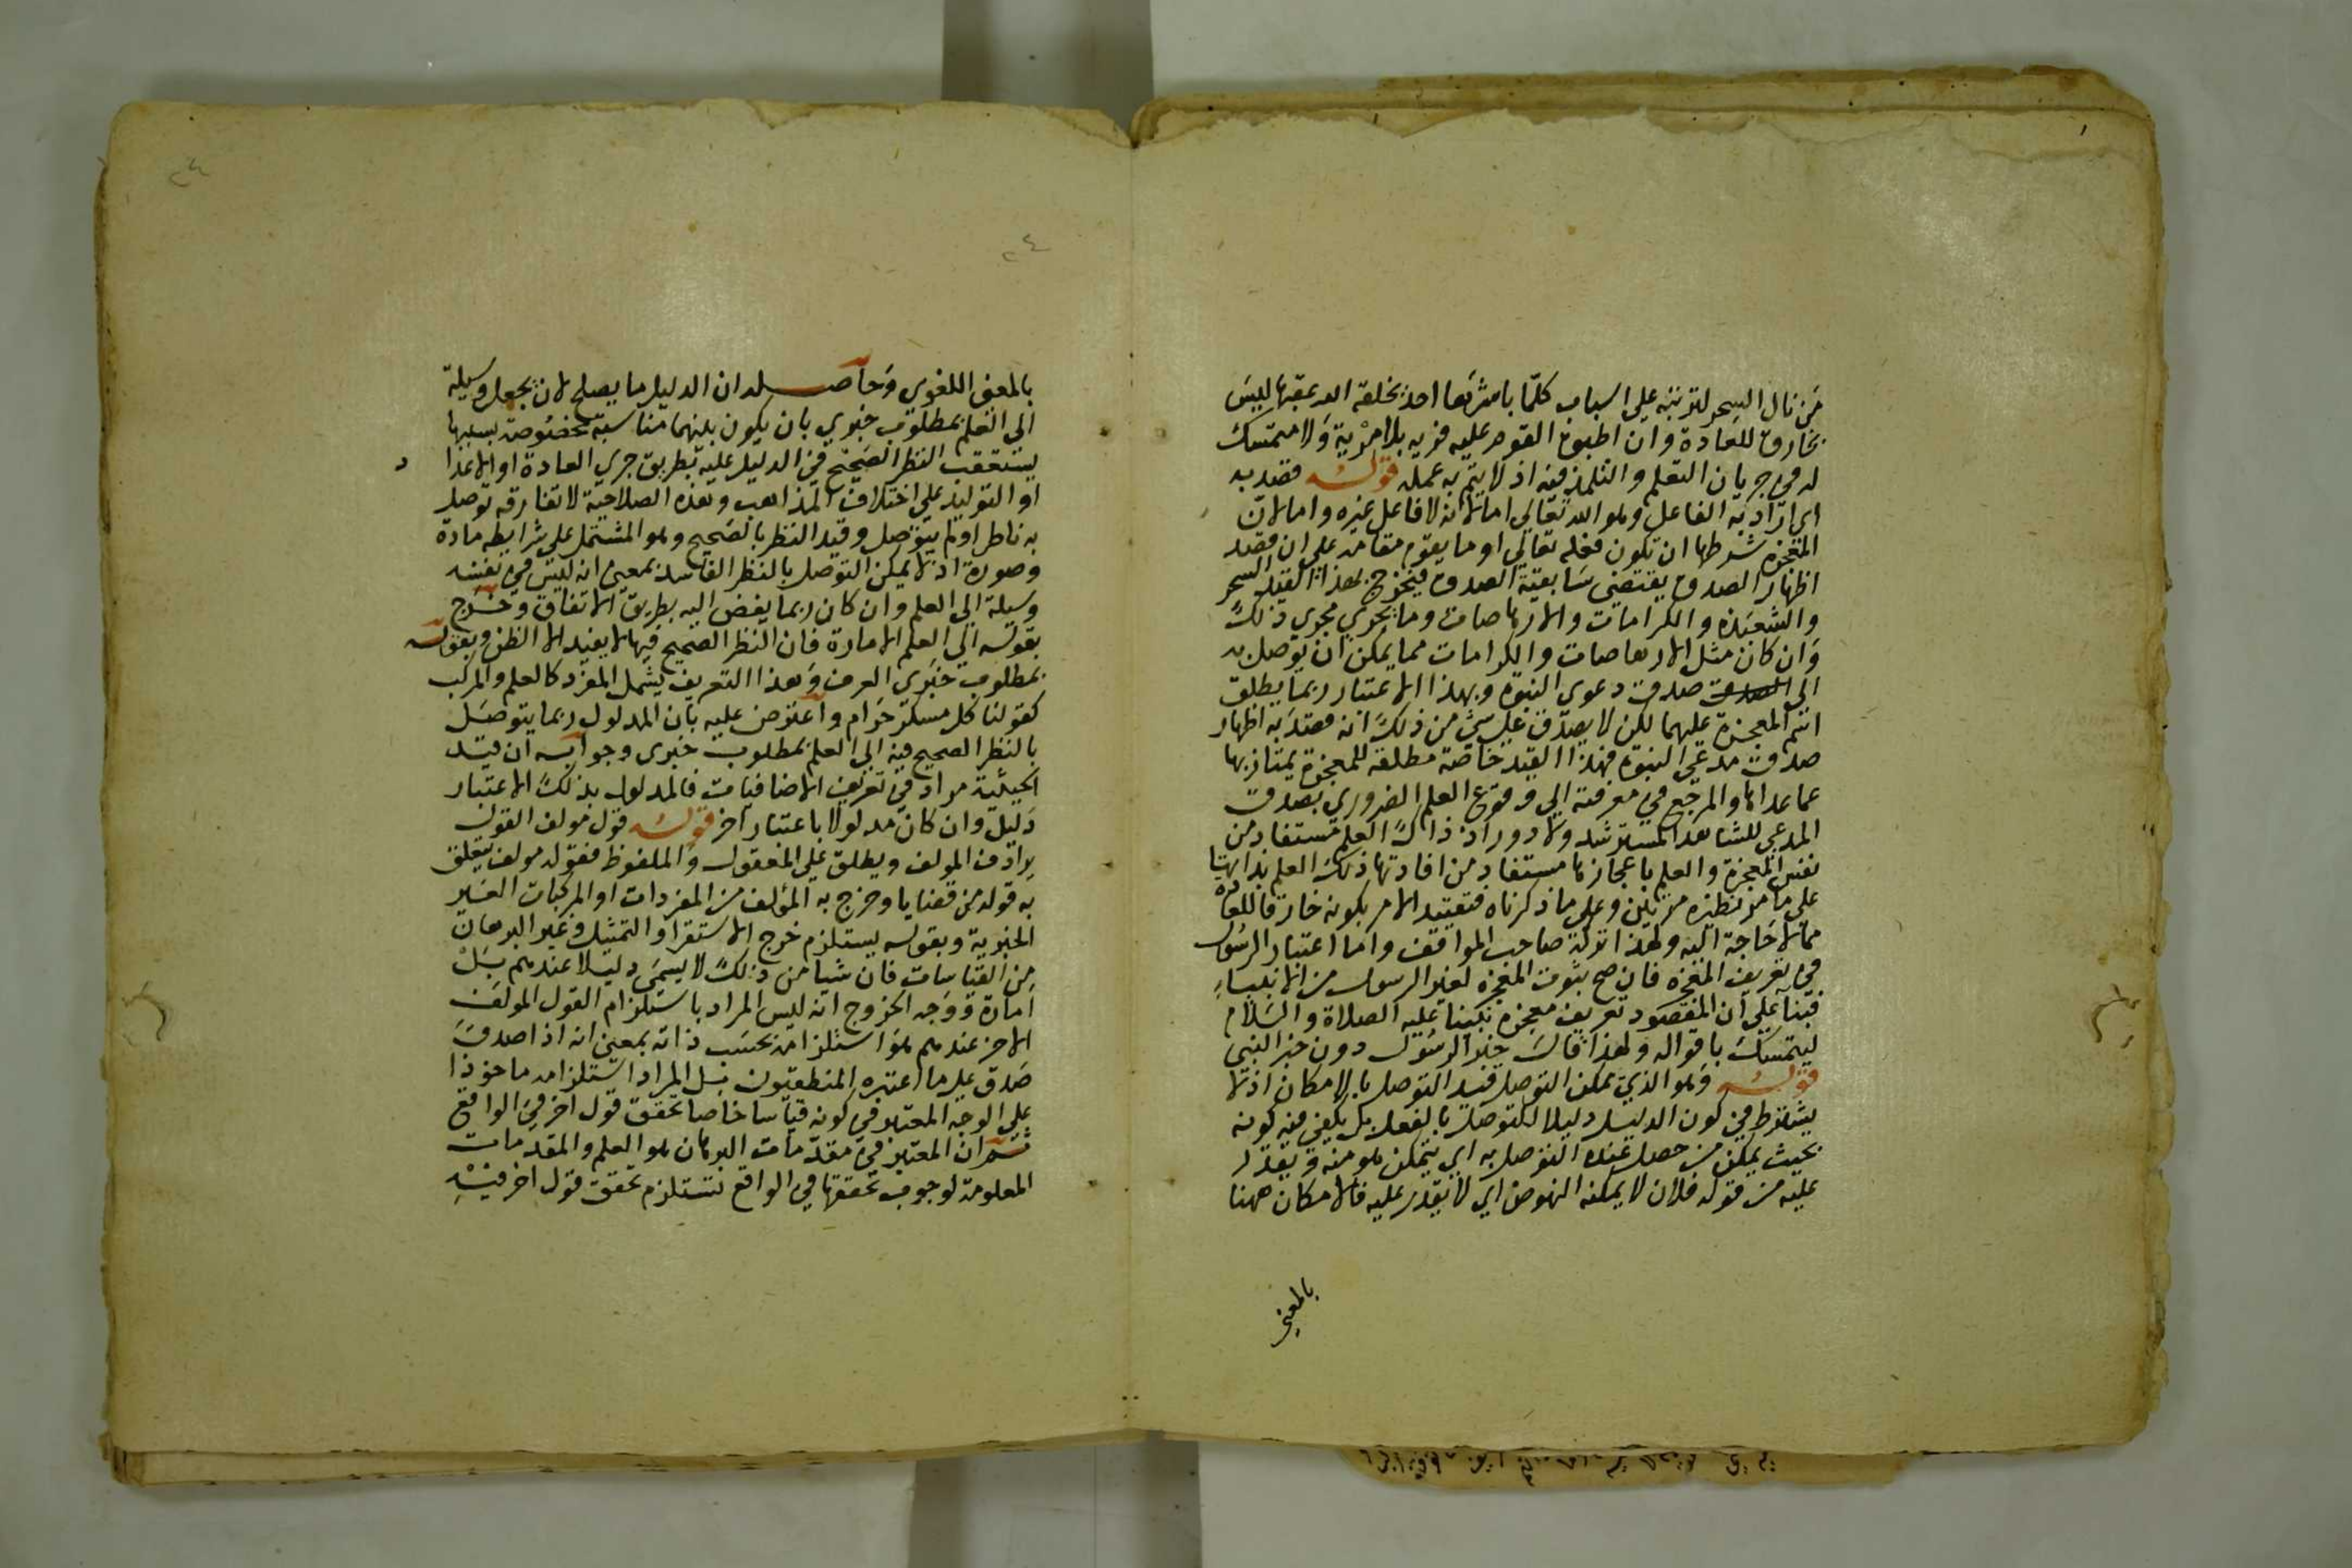 من نال السحر لترتبه علي اسباب كلما باشرها احد بخلقه الله عقبها ليس
بخارق للعادة وان اطبق القوم عليه فريه بلا مرية ولا متمسك
له في جريان التعلم والتلمذ فيه اذ لا يتم به عمله قوله قصد به
اي اراد به الفاعل وهو الله تعالي اما لانه لا فاعل غيره واما لان
المعجزه شرطها ان تكون فعله تعالي او ما يقوم مقامه علي ان قصد
اظهار الصدق يقتضي سابقية الصدق فيخرج بهذا القيد السحر
والشعبذه والكرامات والارهاصات وما يجري مجري ذلك
وان كان مثل الارهاصات والكرامات مما يمكن ان يوصل به
الي صدق دعوي النبوة وبهذا الاعتبار ربما يطلق
اسم المعجزة عليهما لكن لا يصدق علي شئ من ذلك انه قصد به اظهار
صدق مدعي النبوة فهذا القيد خاصة مطلقة للمعجزة يمتاز بها
عما عداها والمرجع في معرفته الي وقوع العلم الضروري بصدق
المدعي للشاهد المسترشد ولا دور اذ ذاك العلم مستفاد من
نفس المعجزة والعلم باعجازها مستفاد من افادتها ذلك العلم بداهتها
علي ما مر نظيره مرتين وعلي ما ذكرناه فتقييد الامر بكونه خارقا للعادة
مما لا حاجة اليه ولهذا تركه صاحب المواقف واما اعتبار الرسول
في تعريف المعجزه فان صح ثبوت المعجزه لغير الرسول من الانبياء
فبناء علي ان المقصود تعريف معجزة نبينا عليه الصلاة والسلام
ليتمسك باقواله ولهذا قال خبر الرسول دون خبر النبي
قوله وهو الذي يمكن التوصل قيد التوصل بالامكان اذ لا
يشترط في كون الدليل دليلا التوصل بالفعل بل يكفي فيه كونه
بحيث يمكن من حصل عنده التوصل به اي يتمكن هو منه ويقدر
عليه من قوله فلان لا يمكنه النهوض اي لا يقدر عليه فالامكان ههنا
بالمعني
٢٤
٢٤
بالمعني اللغوي وحاصله ان الدليل ما يصلح لان يجعل وسيلة
الي العلم بمطلوب خبري بان يكون بينهما مناسبة مخصوصة بسببها
يستعقب النظر الصحيح في الدليل عليه بطريق جري العادة او الاعدا
د
او التوليد علي اختلاف المذاهب وهذه الصلاحية لا تفارقه توصل
به ناظر او لم يتوصل وقيد النظر بالصحيح وهو المشتمل علي شرايطه مادة
وصورة اذ لا يمكن التوصل بالنظر الفاسد بمعني انه ليس في نفسه
وسيلة الي العلم وان كان ربما يفضي اليه بطريق الاتفاق وخرج
بقوله الي العلم الامارة فان النظر الصحيح فيها لا يفيد الا الظن وبقوله
بمطلوب خبري المعرف وهذا التعريف يشمل المفرد كالعلم والمركب
كقولنا كل مسكر حرام واعترض عليه بان المدلول ربما يتوصل
بالنظر الصحيح فيه الي العلم بمطلوب خبري وجوابه ان قيد
الحيثية مراد في تعريف الاضافيات فالمدلول بذلك الاعتبار
دليل وان كان مدلولا باعتبار آخر قوله قول مولف القول
يرادف المولف ويطلق علي المعقول والملفوظ فقوله مولف يتعلق
به قوله من قضايا وخرج به المؤلف من المفردات او المركبات الغير
الخبرية وبقوله يستلزم خرج الاستقرا والتمثيل وغير البرهان
من القياسات فان شيا من ذلك لا يسمي دليلا عندهم بل
امارة ووجه الخروج انه ليس المراد باستلزام القول المولف
الاخر عندهم هو استلزامه بحسب ذاته بمعني انه اذا صدق
صدق علي ما اعتبره المنطقيون بل المراد استلزامه ماخوذا
علي الوجه المعتبر في كونه قياسا خاصا تحقق قول اخر في الواقع
ثم ان المعتبر في مقدمات البرهان هو العلم والمقدمات
المعلومة لوجوب تحققها في الواقع تستلزم تحقق قول اخر فيه